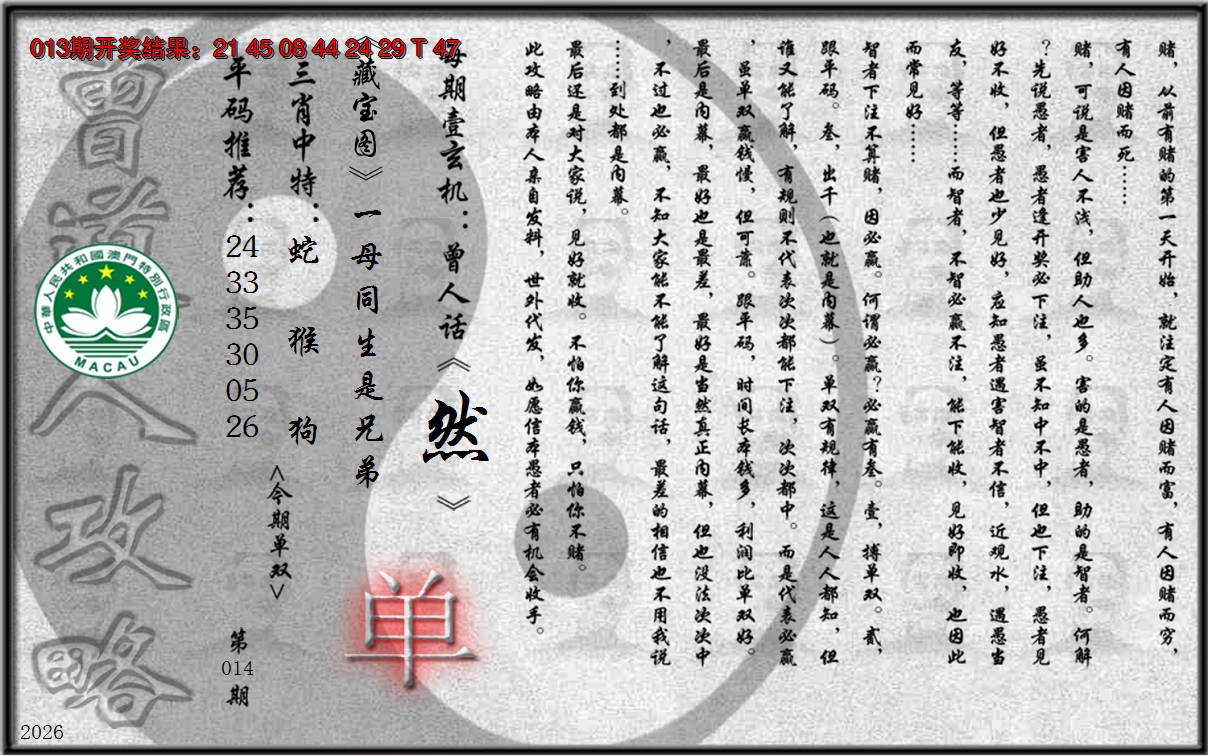 013期开奖结果：21 45 08 44 24 29 T 47
赌，从前有赌的第一天开始，就注定有人因赌而富，有人因赌而穷，
有人因赌而死……
赌，可说是害人不浅，但助人也多。害的是愚者，助的是智者。何解
？先说愚者，愚者逢开奖必下注，虽不知中不中，但也下注，愚者见
好不收，但愚者也少见好，应知愚者遇害智者不信，近观水，遇愚当
友，等等……而智者，不智必赢不注，能下能收，见好即收，也因此
而常见好……
智者下注不算赌，因必赢。何谓必赢？必赢有叁。壹，搏单双。贰，
跟平码。叁，出千（也就是内幕）。单双有规律，这是人人都知，但
谁又能了解，有规则不代表次次都能下注，次次都中。而是代表必赢
，虽单双赢钱慢，但可靠。跟平码，时间长本钱多，利润比单双好。
最后是内幕，最好也是最差，最好是当然真正内幕，但也没法次次中
，不过也必赢，不知大家能不能了解这句话，最差的相信也不用我说
……到处都是内幕。
最后还是对大家说，见好就收。不怕你赢钱，只怕你不赌。
此攻略由本人亲自发料，世外代发，如愿信本愚者必有机会收手。
每期壹玄机：曾人话《然》
《藏宝图》一母同生是兄弟
三肖中特：蛇 猴 狗
平码推荐：
24
33
35
30
05
26
<今期单双>
单
第
014
期
曾道人攻略
中華人民共和國澳門特別行政區
MACAU
2026